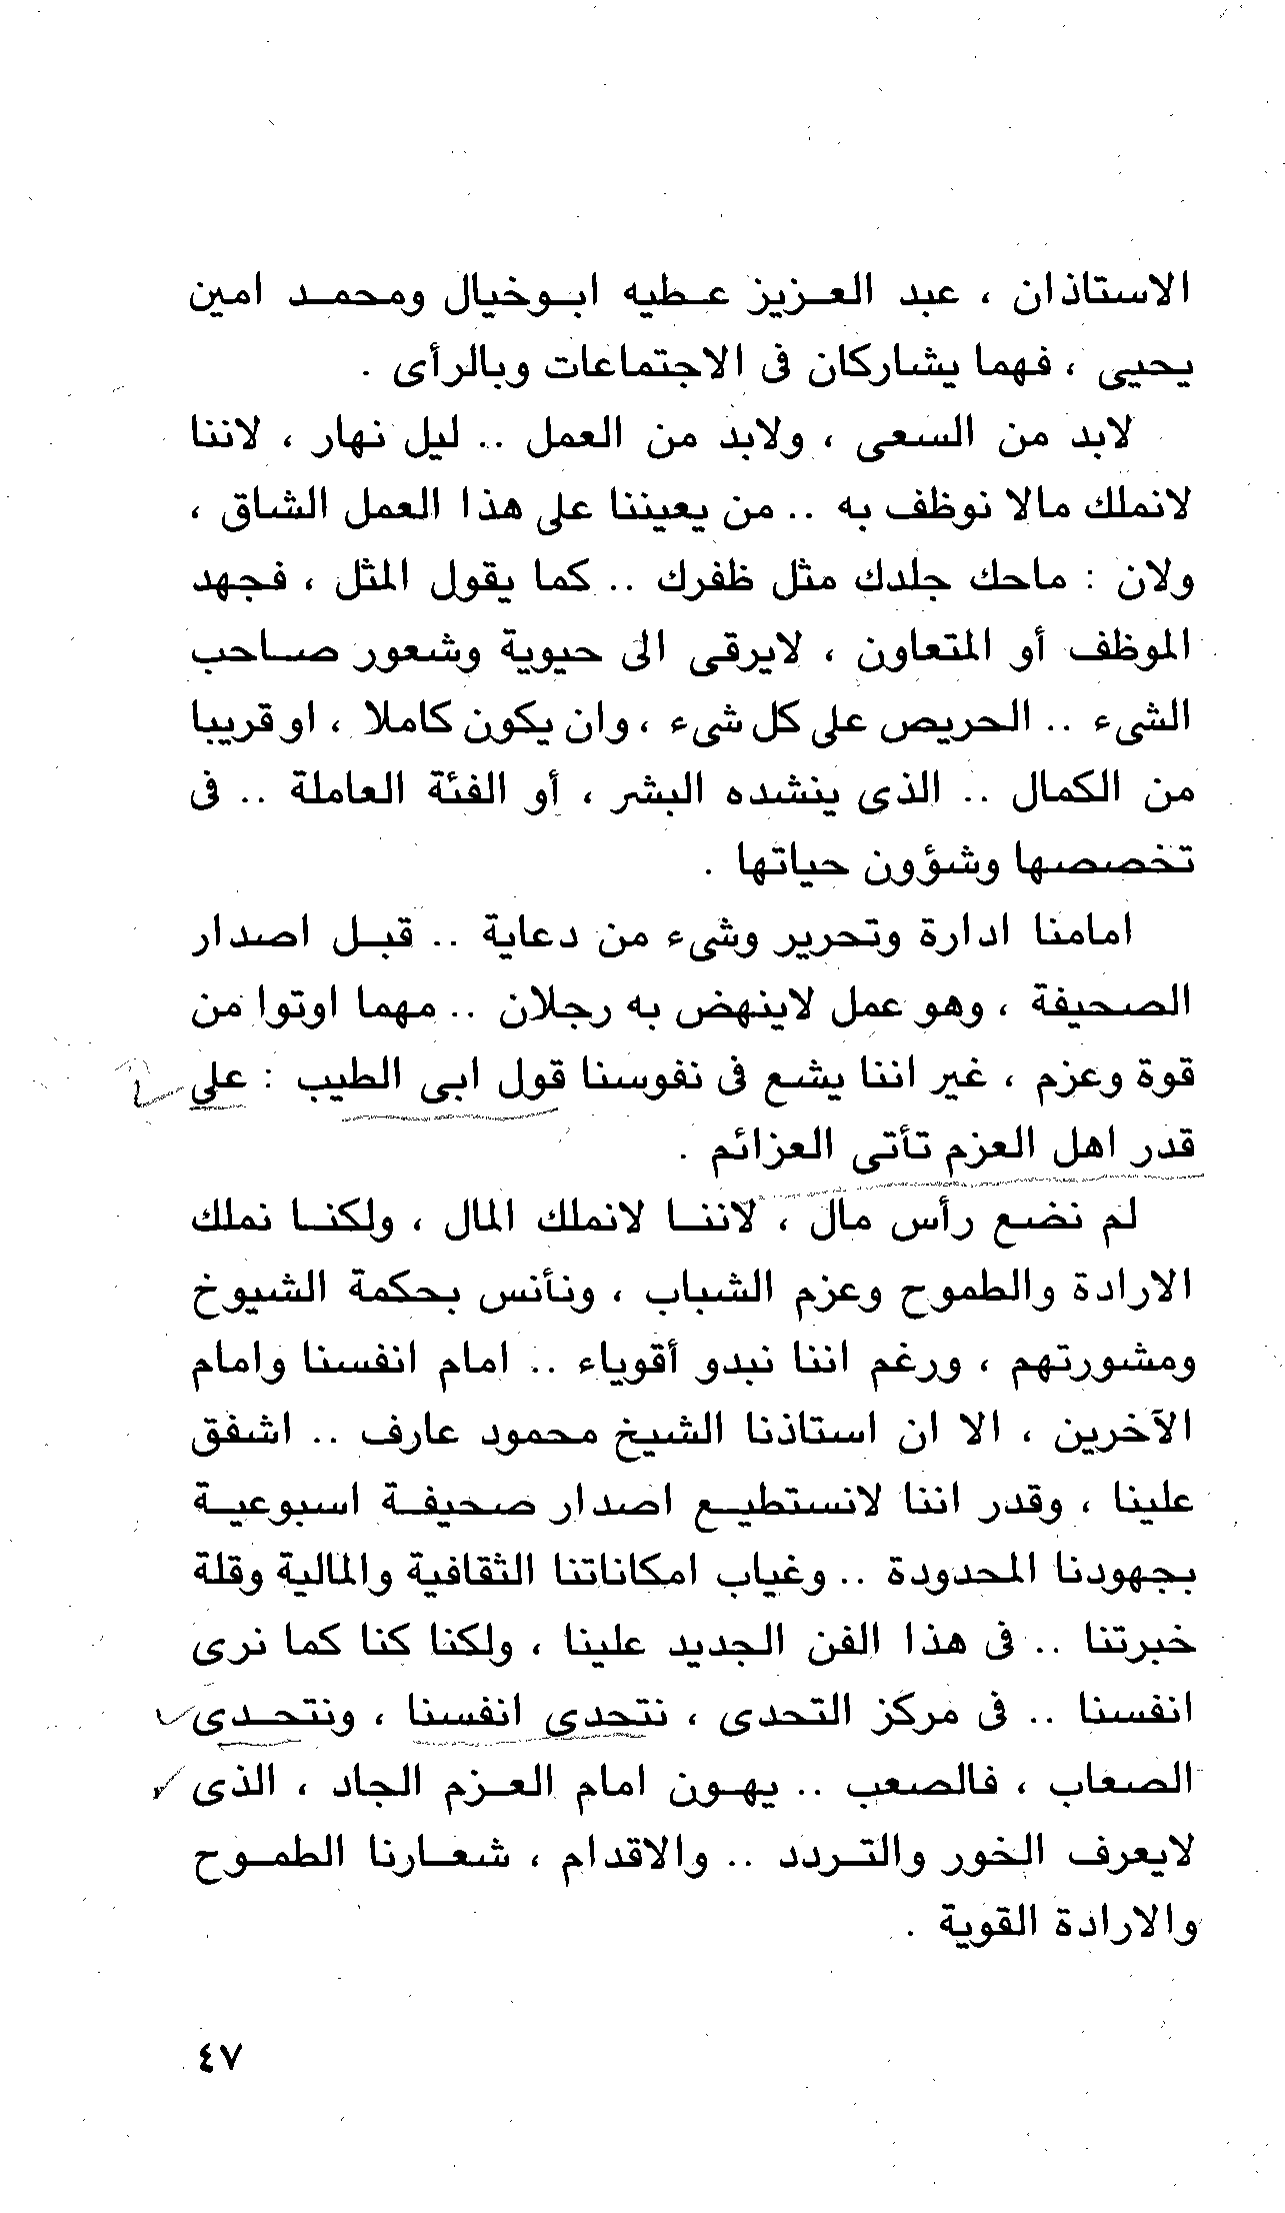 الاستاذان ، عبد العزيز عطيه ابوخيال ومحمد امين
يحيى ، فهما يشاركان فى الاجتماعات وبالرأى .
لابد من السعى ، ولابد من العمل .. ليل نهار ، لاننا
لانملك مالا نوظف به .. من يعيننا على هذا العمل الشاق ،
ولان : ماحك جلدك مثل ظفرك .. كما يقول المثل ، فجهد
الموظف أو المتعاون ، لايرقى الى حيوية وشعور صاحب
الشىء .. الحريص على كل شىء ، وان يكون كاملا ، او قريبا
من الكمال .. الذى ينشده البشر ، أو الفئة العاملة .. فى
تخصصها وشؤون حياتها .
امامنا ادارة وتحرير وشىء من دعاية .. قبل اصدار
الصحيفة ، وهو عمل لاينهض به رجلان .. مهما اوتوا من
قوة وعزم ، غير اننا يشع فى نفوسنا قول ابى الطيب : على
قدر اهل العزم تأتى العزائم .
لم نضع رأس مال ، لاننا لانملك المال ، ولكنا نملك
الارادة والطموح وعزم الشباب ، ونأنس بحكمة الشيوخ
ومشورتهم ، ورغم اننا نبدو أقوياء .. امام انفسنا وامام
الآخرين ، الا ان استاذنا الشيخ محمود عارف .. اشفق
علينا ، وقدر اننا لانستطيع اصدار صحيفة اسبوعية
بجهودنا المحدودة .. وغياب امكاناتنا الثقافية والمالية وقلة
خبرتنا .. فى هذا الفن الجديد علينا ، ولكنا كنا كما نرى
انفسنا .. فى مركز التحدى ، نتحدى انفسنا ، ونتحدى
الصعاب ، فالصعب .. يهون امام العزم الجاد ، الذى
لايعرف الخور والتردد .. والاقدام ، شعارنا الطموح
والارادة القوية .
٤٧